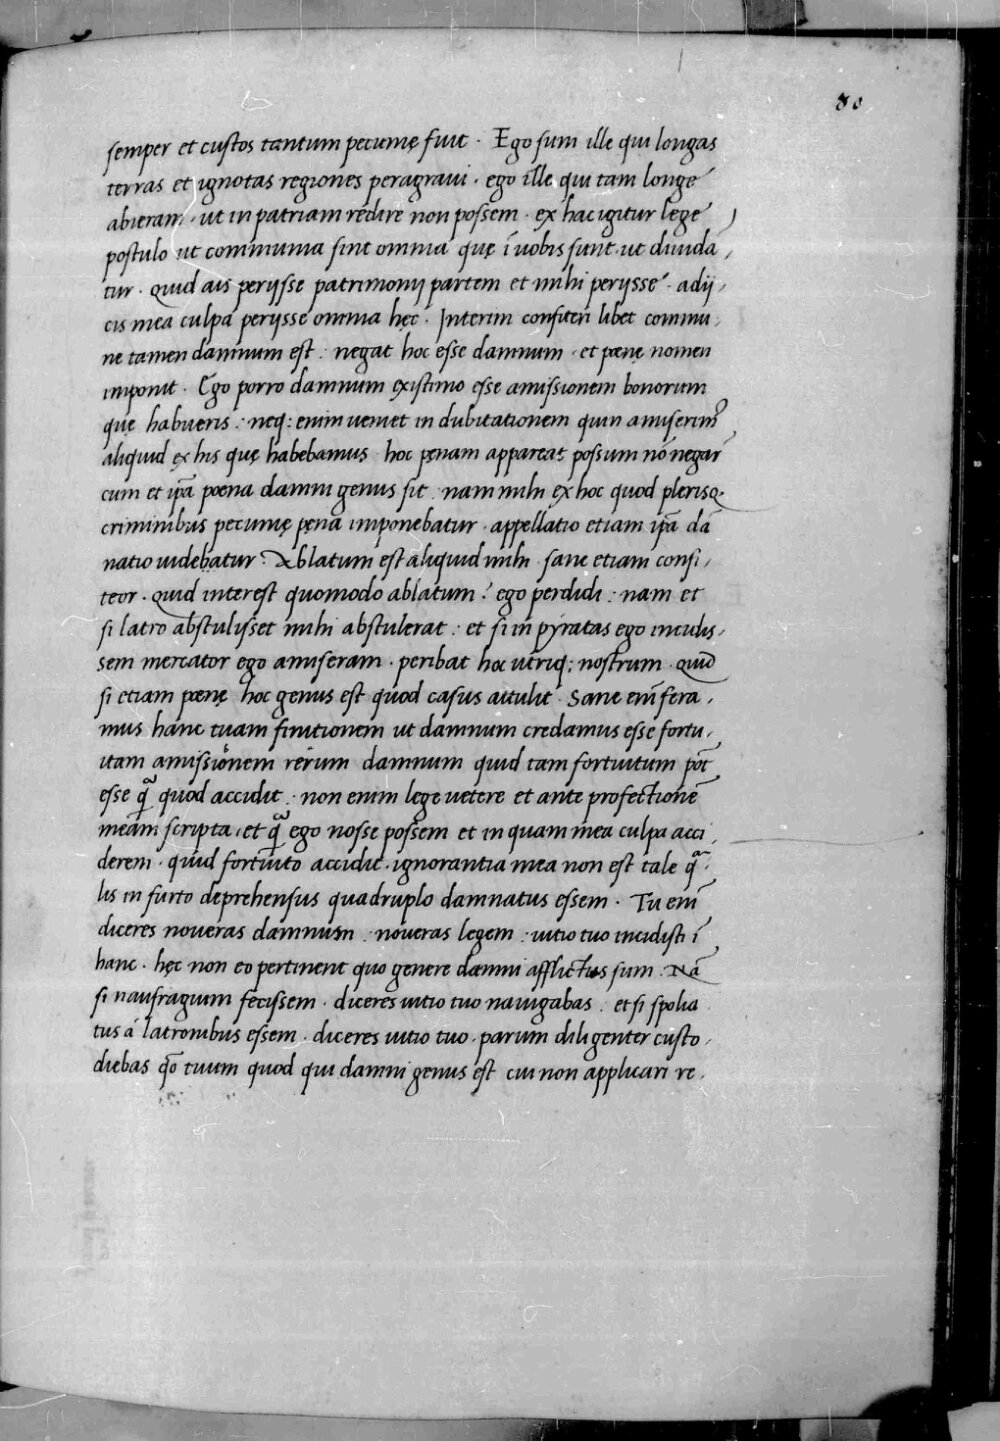 80
semper et custos tantum pecunię fuit · Ego sum ille qui longas
terras et ignotas regiones peragravi · ego ille qui tam longe
abieram · ut in patriam redire non possem · ex hac igitur lege
postulo ut communia sint omnia quę ī uobis sunt ut diuidā
tur · quid ais perijsse patrimonij partem et mihi perijsse · adij
cis mea culpa perijsse omnia hęc · Interim confiteri libet commu
ne tamen damnum est : negat hoc esse damnum · et pœnę nomen
imponit · Ego porro damnum existimo esse amissionem bonorum
quę habueris : neq; enim ueniet in dubitationem quin amiserim
aliquid ex his quę habebamus hoc pęnam appareat possum nō negar
cum et ip̄a poena damni genus sit · nam mihi ex hoc quod plerisq
criminibus pecunię pęna imponebatur · appellatio etiam ip̄a dā
natio uidebatur : Ablatum est aliquid mihi · sane etiam confi
teor · quid interest quomodo ablatum ? ego perdidi : nam et
si latro abstulisset mihi abstulerat : et si in pyratas ego incidis
sem mercator ego amiseram · peribat hoc utriq; nostrum · quid
si etiam pœnę hoc genus est quod casus attulit · Sane enī fera
mus hanc tuam finitionem ut damnum credamus esse fortu
itam amissionem rerum damnum quid tam fortuitum pōt
esse q̄ quod accidit · non enim lege uetere et ante profectionē
meam scripta · et q̄ ego nosse possem et in quam mea culpa acci
derem · quid fortuito accidit · ignorantia mea non est tale q̄
lis in furto deprehensus quadruplo damnatus essem · Tu enī
diceres noueras damnum : noueras legem : uitio tuo incidisti ī
hanc · hęc non eo pertinent quo genere damni afflictus sum · Nā
si naufragium fecissem · diceres uitio tuo nauigabas : et si spolia
tus a latronibus essem · diceres uitio tuo · parum diligenter custo
diebas qō tuum quod qui damni genus est cui non applicari re